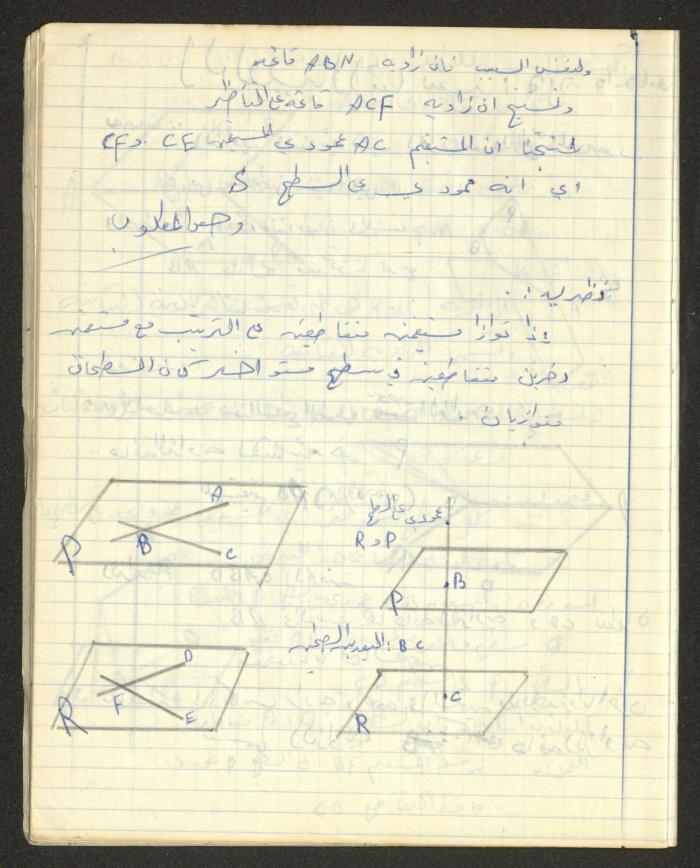 ولنفس السبب فان زاويه ABN قائمه
ونستنتج ان زاويه ACF قائمة على التناظر
استنتجنا ان المستقيم AC عمودي على المستقيمين CE و CF
اي انه عمودي على السطح S
وهو المطلوب
نظريه :
إذا توازا مستقيمين متقاطعين على الترتيب مع مستقيمين
اخرين متقاطعين في سطح مستو اخر كان السطحان
متوازيان .
A
B
C
P
عمودي على السطح
P و R
B
P
D
F
E
R
BC : البعد بين السطحين
C
R